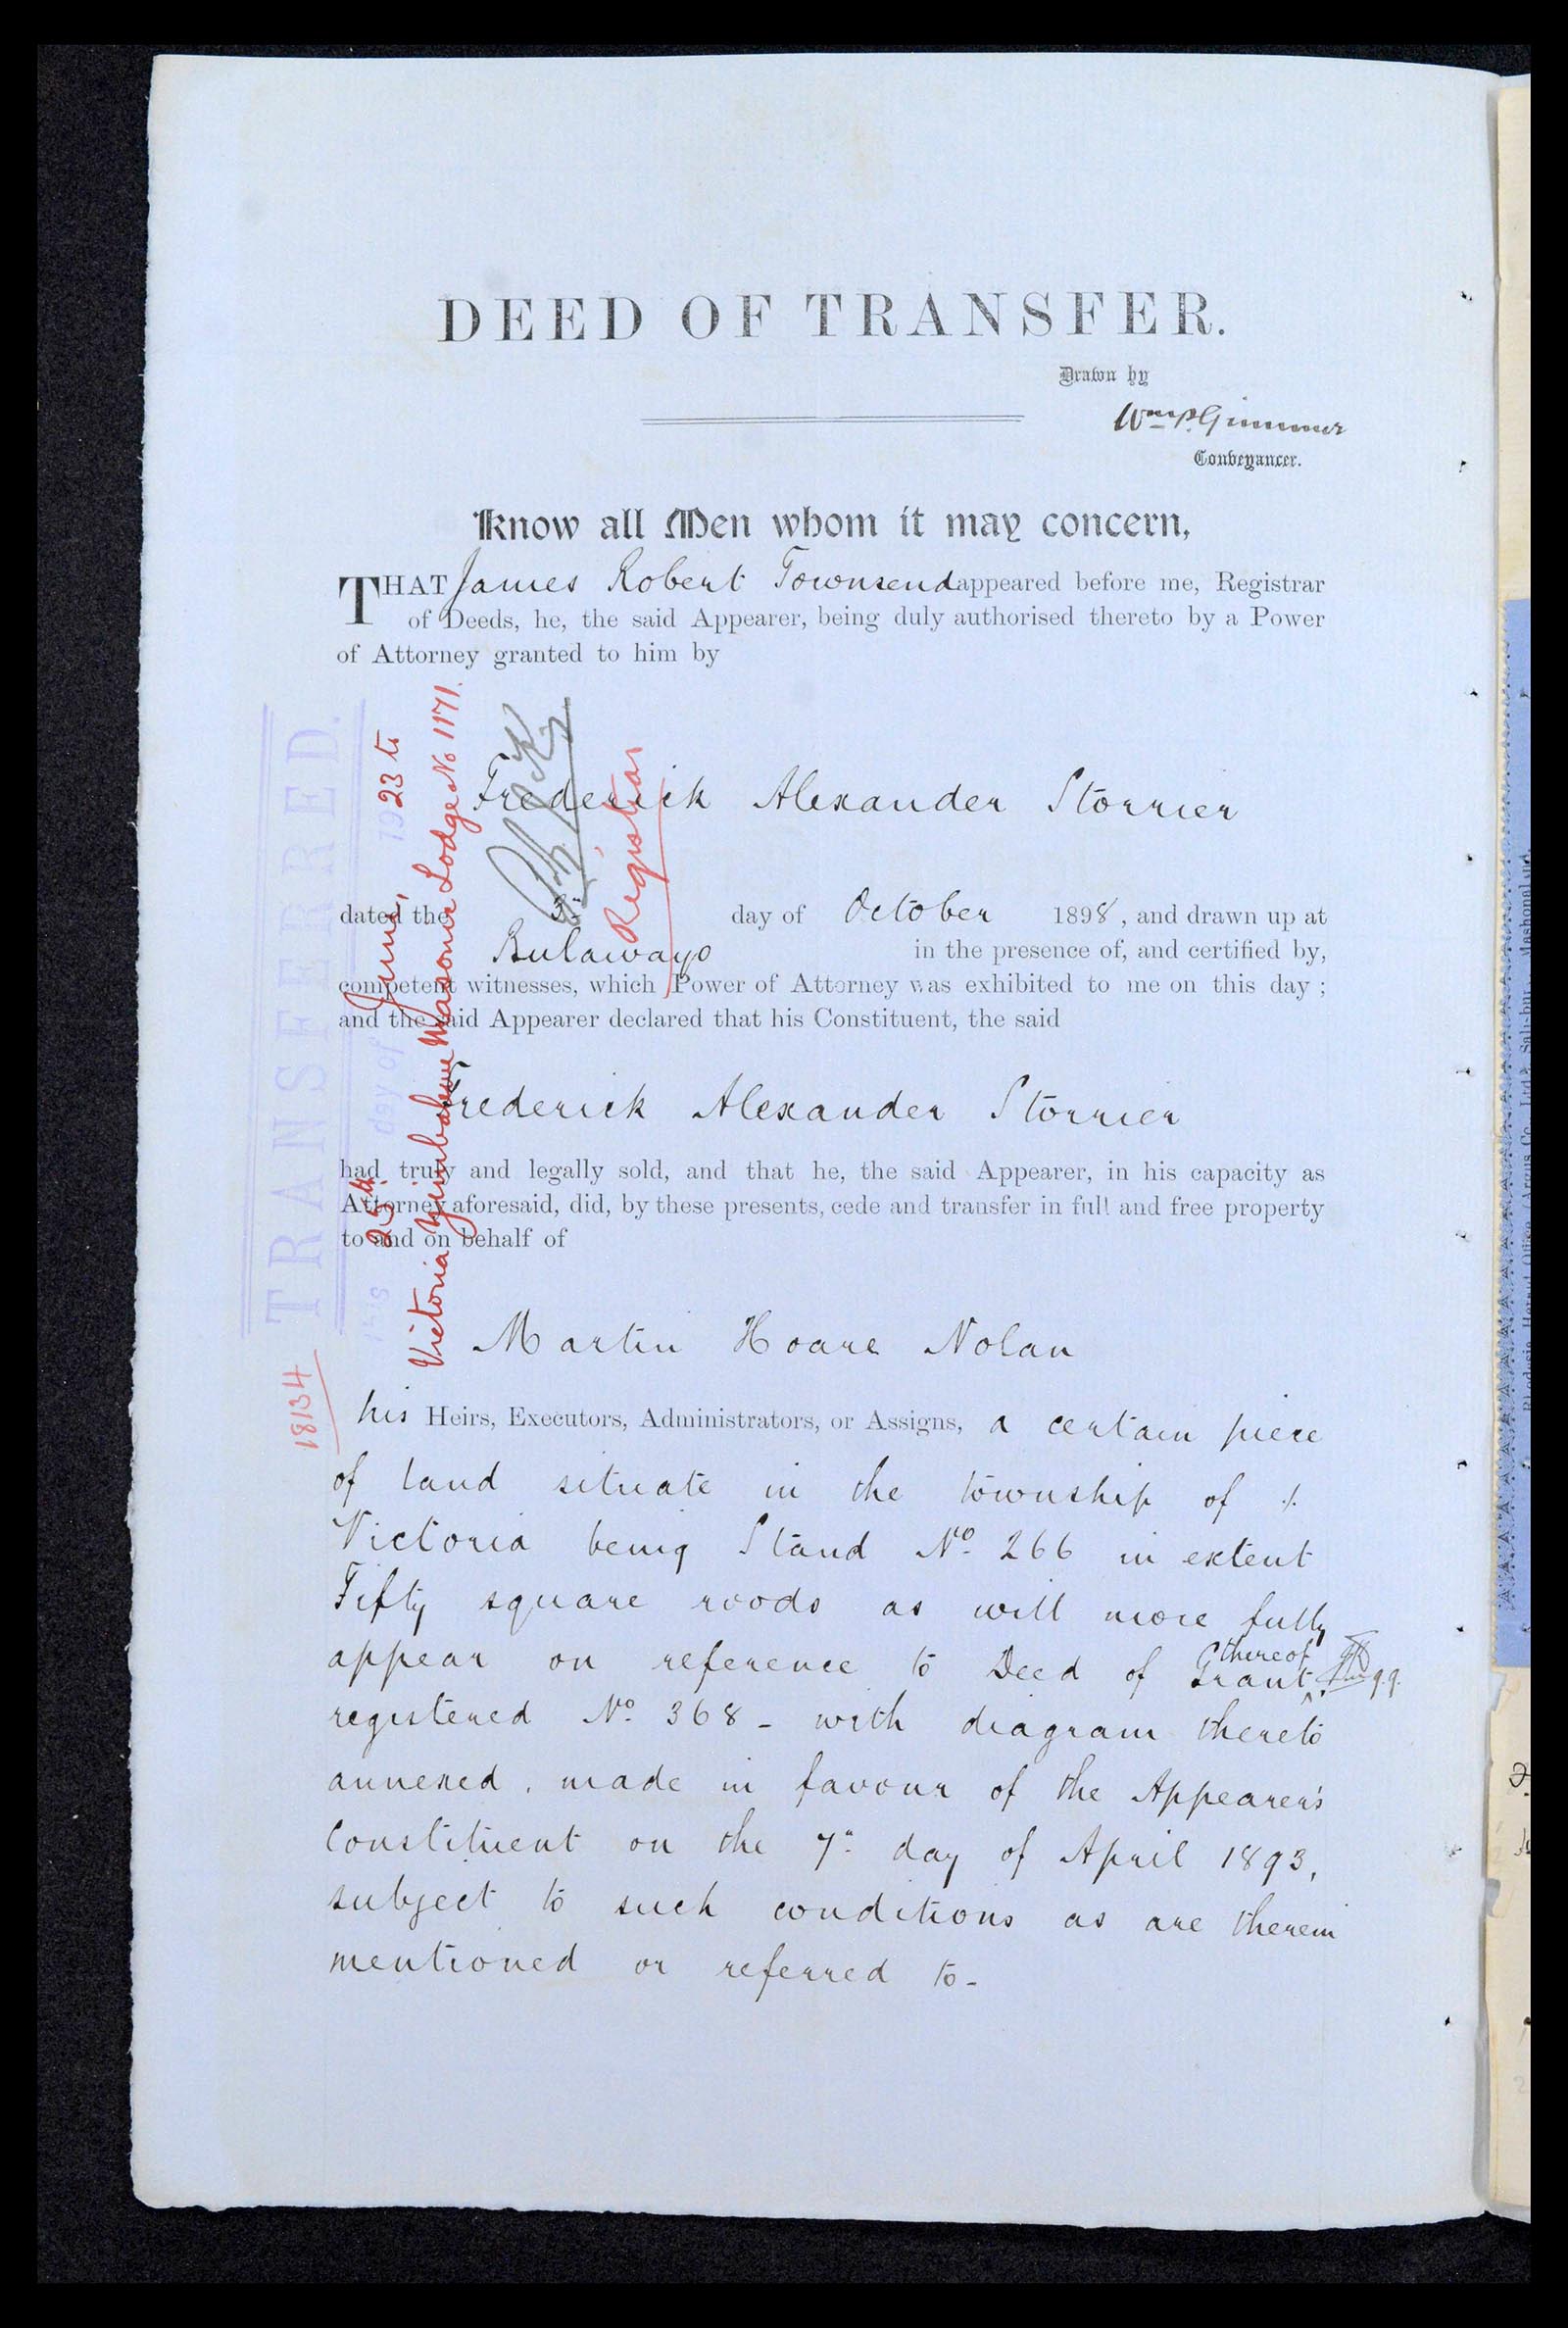 DEED OF TRANSFER.
Drawn by
Wm P. Gimmer
Conveyancer.
Know all Men whom it may concern,
THAT James Robert Townsend appeared before me, Registrar
of Deeds, he, the said Appearer, being duly authorised thereto by a Power
of Attorney granted to him by
Frederick Alexander Storrier
dated the day of October 1898, and drawn up at
Bulawayo in the presence of, and certified by,
competent witnesses, which Power of Attorney was exhibited to me on this day ;
and the said Appearer declared that his Constituent, the said
Frederick Alexander Storrier
had truly and legally sold, and that he, the said Appearer, in his capacity as
Attorney aforesaid, did, by these presents, cede and transfer in full and free property
to and on behalf of
Martin Hoare Nolan
his Heirs, Executors, Administrators, or Assigns, a certain piece
of land situate in the township of
Victoria being Stand No. 266 in extent
Fifty square roods as will more fully
thereof
appear on reference to Deed of Grant q.q.
registered No. 368 - with diagram thereto
annexed, made in favour of the Appearer's
Constituent on the 7th day of April 1893,
subject to such conditions as are therein
mentioned or referred to -
TRANSFERRED.
this 25th day of June, 1923 to
Victoria Zimbabwe Masonic Lodge No 1171.
Registrar
18134